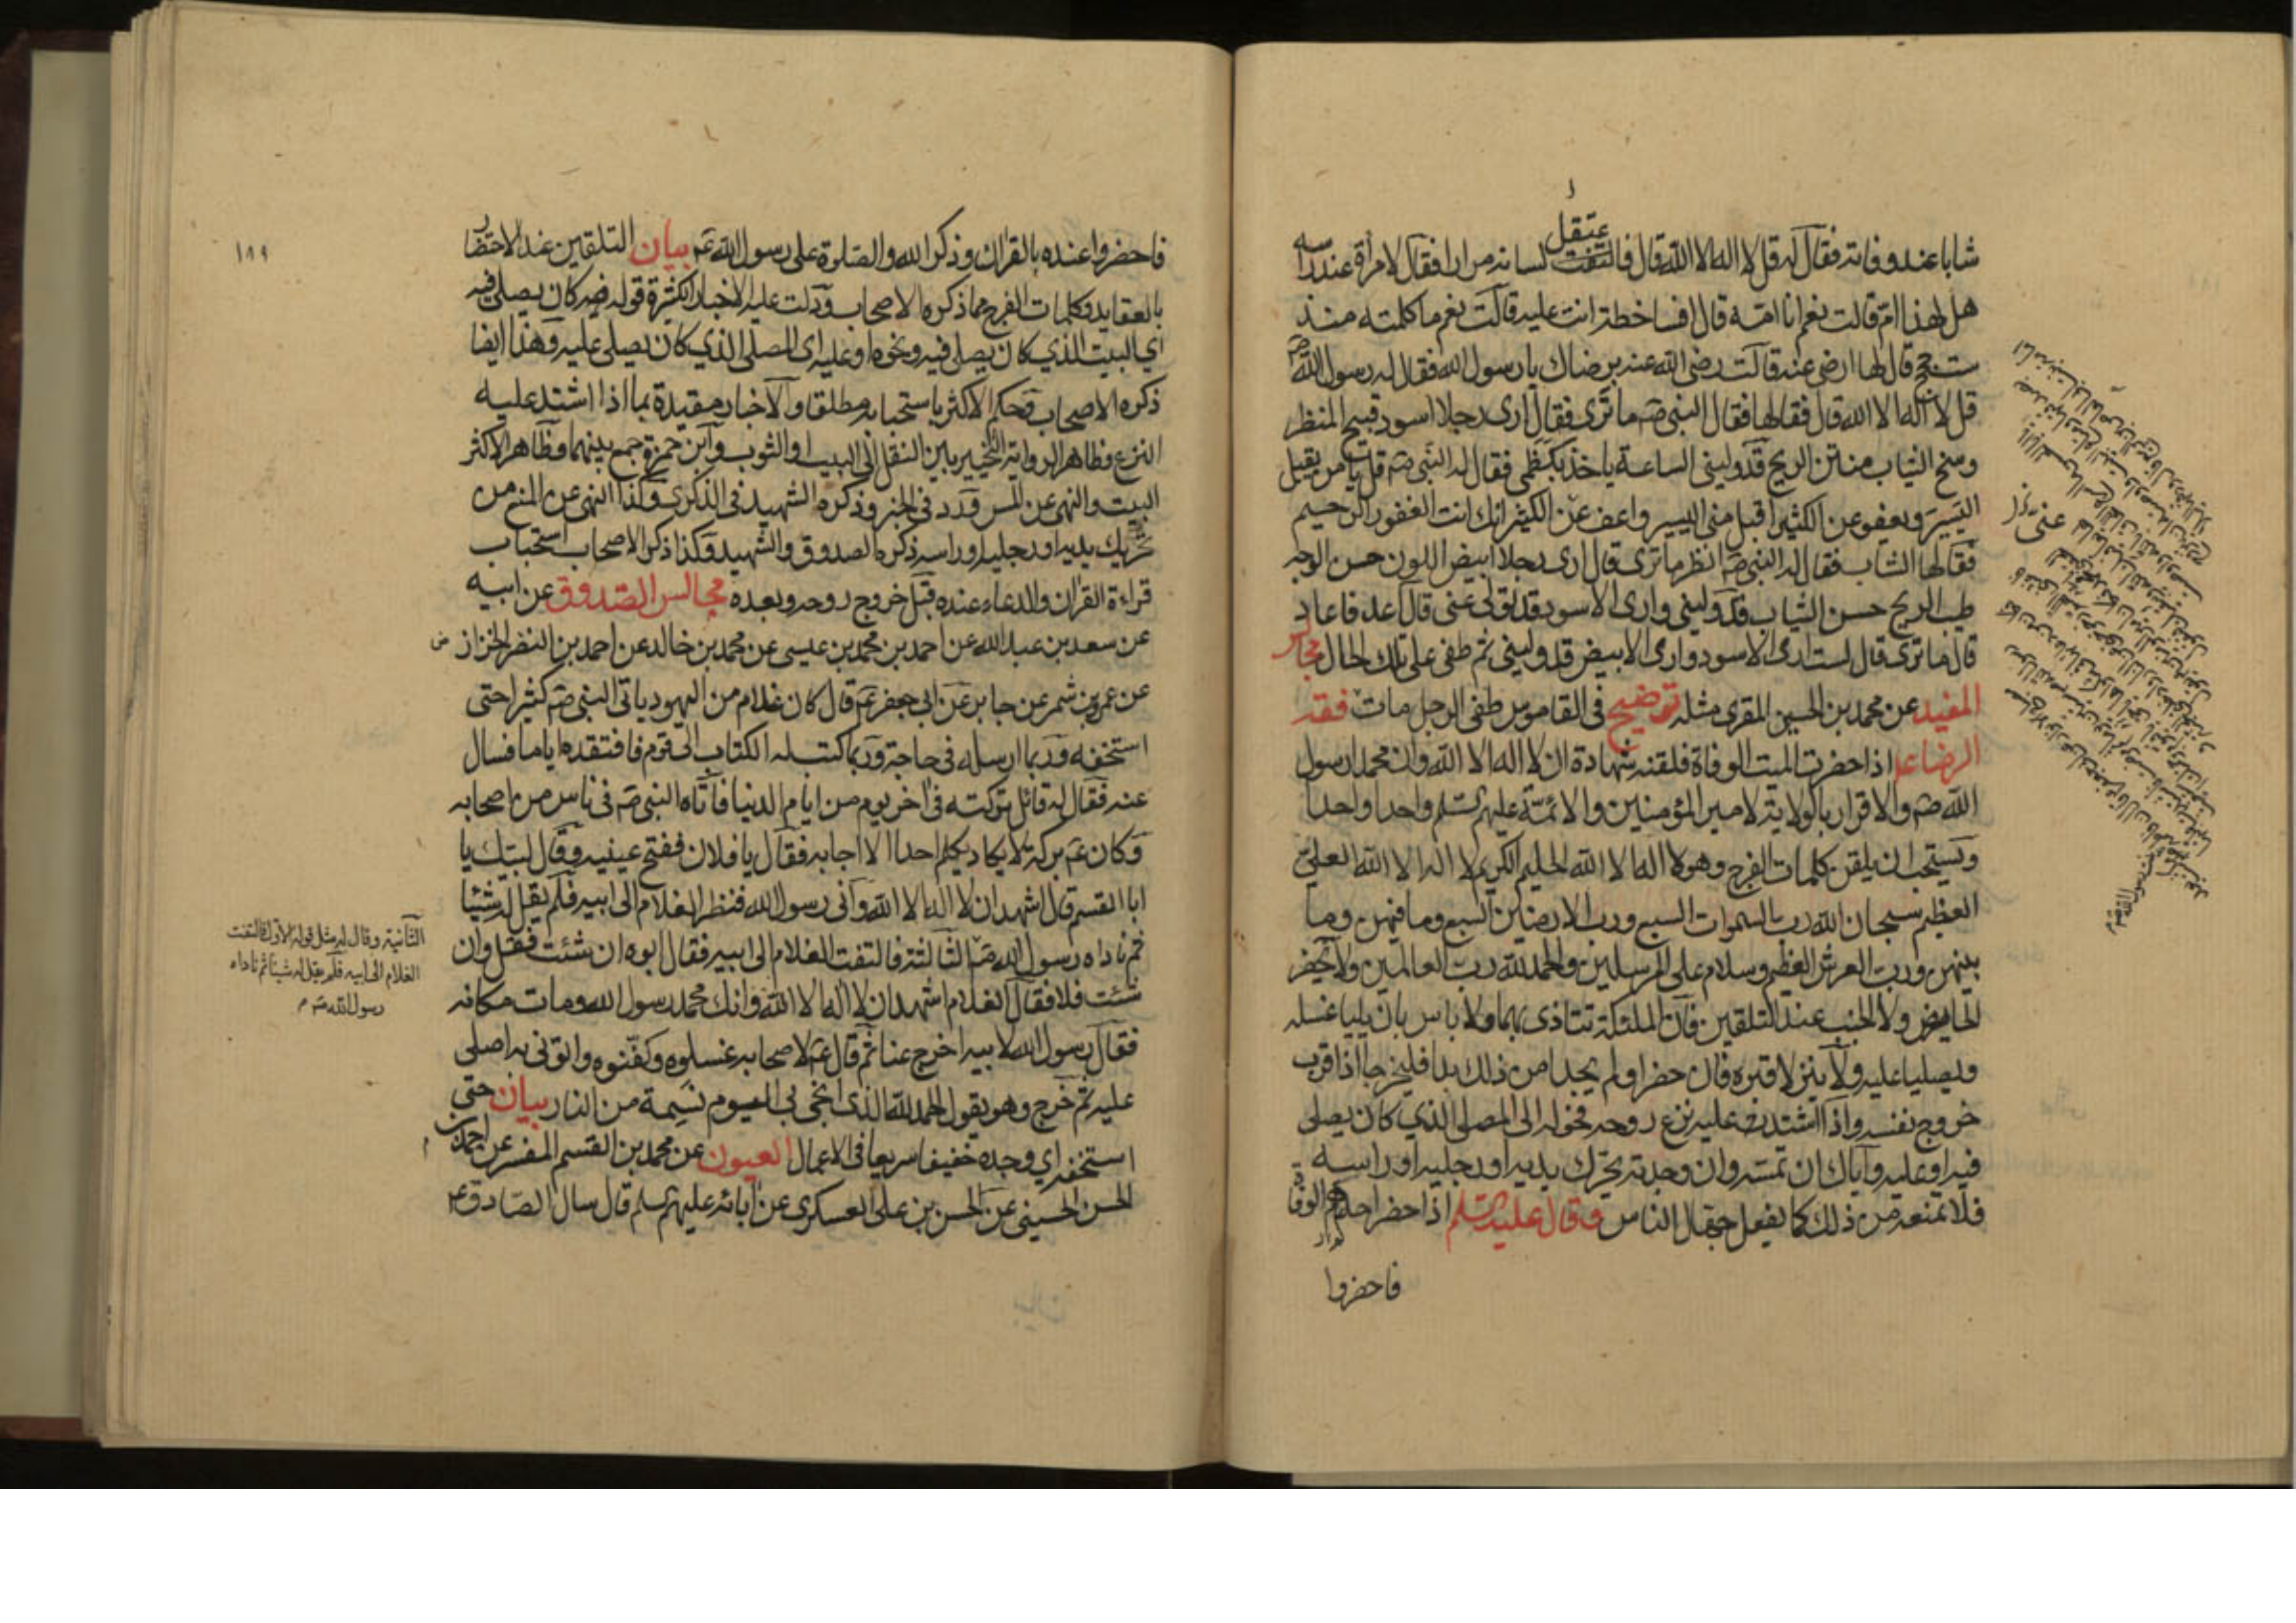 شابا عند وفاته فقال له قل لا اله الا الله قال فاعتقل لسانه مرارا فقال لامرأة عند راسه
هل لهذا امّ قالت نعم انا امّه قال افساخطة انت عليه قالت نعم ما كلمته منذ
ست حجج قال لها ارضى عنه قالت رضى الله عنه برضاك يا رسول الله فقال له رسول الله صم
قل لا اله الا الله قال فقالها فقال النبى صم ما ترى فقال ارى رجلا اسود قبيح المنظر
وسخ الثياب منتن الريح قد وليني الساعة ياخذ بكظمي فقال له النبى صم قل يا من يقبل
اليسير ويعفو عن الكثير اقبل منى اليسير واعف عن الكثير انك انت الغفور الرحيم
فقالها الشاب فقال له النبى صم انظر ما ترى قال ارى رجلا ابيض اللون حسن الوجه
طيب الريح حسن الثياب قد وليني وارى الاسود قد تولى عنى قال اعد فاعاد
قال ما ترى قال لست ارى الاسود وارى الابيض قد وليني ثم طفى على تلك الحال مجالس
المفيد عن محمد بن الحسين المقرى مثله توضيح فى القاموس طفى الرجل مات فقه
الرضا ع اذا حضرت الميت الوفاة فلقنه شهادة ان لا اله الا الله وان محمدا رسول
الله صم والاقرار بالولاية لامير المؤمنين والائمة عليهم السلم واحدا واحدا
ويستحب ان يلقن كلمات الفرج وهو لا اله الا الله الحليم الكريم لا اله الا الله العلي
العظيم سبحان الله رب السموات السبع ورب الارضين السبع وما فيهن وما
بينهن ورب العرش العظيم وسلام على المرسلين والحمد لله رب العالمين ولا تحضر
الحايض ولا الجنب عند التلقين فان الملئكة تتاذى بهما ولا باس بان يليا غسله
ويصليا عليه ولا ينزلا قبره فان حضرا ولم يجدا من ذلك بدا فليخرجا اذا قرب
خروج نفسه واذا اشتد عليه نزع روحه فحوله الى المصلى الذي كان يصلى
فيه او عليه واياك ان تمسه وان وجدته يحرك يديه او رجليه او راسه
فلا تمنعه من ذلك كما يفعل جهال الناس وقال عليه السلم اذا حضر احدكم الوفاة
فاحضروا
فاحضروا عنده بالقران وذكر الله والصلوة على رسول الله صم بيان التلقين عند الاحتضار
بالعقايد وكلمات الفرج مما ذكره الاصحاب ودلت عليه الاخبار الكثيرة قوله فيه كان يصلي فيه
اي البيت الذي كان يصلي فيه ونحوه او عليه اي المصلى الذي كان يصلى عليه وهذا ايضا
ذكره الاصحاب وحكم الاكثر باستحبابه مطلقا والاخبار مقيدة بما اذا اشتد عليه
النزع وظاهر الرواية التخيير بين النقل الى البيت او الثوب وابن حمزة جمع بينهما وظاهر الاكثر
البيت والنهى عن المس ورد فى الخبر وذكره الشهيد فى الذكرى وكذا النهى عن المنع من
تحريك يديه او رجليه او راسه ذكره الصدوق والشهيد وكذا ذكر الاصحاب استحباب
قراءة القران والدعاء عنده قبل خروج روحه وبعده مجالس الصدوق عن ابيه
عن سعد بن عبد الله عن احمد بن محمد بن عيسى عن محمد بن خالد عن احمد بن النضر الخزاز
عن عمرو بن شمر عن جابر عن ابى جعفر عم قال كان غلام من اليهود ياتى النبى صم كثيرا حتى
استخفه وربما ارسله فى حاجة وربما كتب له الكتاب الى قوم فافتقده اياما فسال
عنه فقال له قائل تركته فى اخر يوم من ايام الدنيا فاتاه النبى صم فى ناس من اصحابه
وكان عم بركة لا يكاد يكلم احدا الا اجابه فقال يا فلان ففتح عينيه وقال لبيك يا
ابا القسم قال اشهد ان لا اله الا الله وانى رسول الله فنظر الغلام الى ابيه فلم يقل له شيئا
ثم ناداه رسول الله صم الثالثة فالتفت الغلام الى ابيه فقال ابوه ان شئت فقل وان
شئت فلا فقال الغلام اشهد ان لا اله الا الله وانك محمد رسول الله ومات مكانه
فقال رسول الله لابيه اخرج عنا ثم قال عم لاصحابه غسلوه وكفنوه واتونى به اصلى
عليه ثم خرج وهو يقول الحمد لله الذى انجى بى اليوم نسمة من النار بيان حتى
استخفه اي وجده خفيفا سريعا فى الاعمال العيون عن محمد بن القسم المفسر عن احمد بن
الحسن الحسينى عن الحسن بن على العسكرى عن ابائه عليهم السلم قال سال الصادق عم
١٨٩
الثانية وقال له مثل قوله الاول فالتفت
الغلام الى ابيه فلم يقل له شيئا ثم ناداه
رسول الله صم